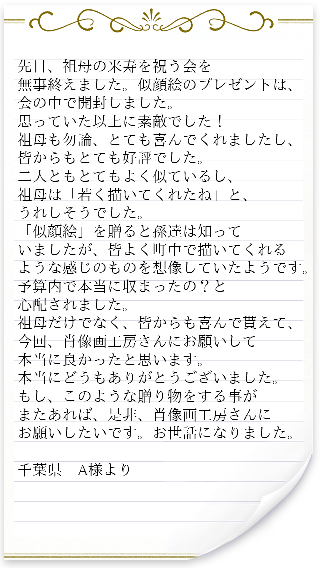 先日、祖母の米寿を祝う会を
無事終えました。似顔絵のプレゼントは、
会の中で開封しました。
思っていた以上に素敵でした！
祖母も勿論、とても喜んでくれましたし、
皆からもとても好評でした。
二人ともとてもよく似ているし、
祖母は「若く描いてくれたね」と、
うれしそうでした。
「似顔絵」を贈ると孫達は知って
いましたが、皆よく町中で描いてくれる
ような感じのものを想像していたようです。
予算内で本当に収まったの？と
心配されました。
祖母だけでなく、皆からも喜んで貰えて、
今回、肖像画工房さんにお願いして
本当に良かったと思います。
本当にどうもありがとうございました。
もし、このような贈り物をする事が
またあれば、是非、肖像画工房さんに
お願いしたいです。お世話になりました。
千葉県　A様より